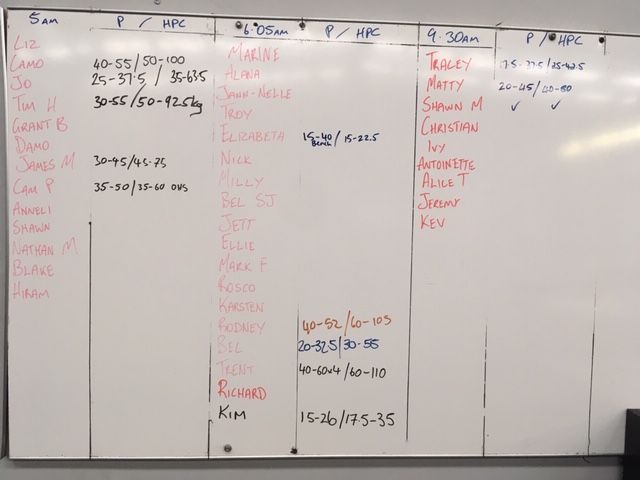 5AM P / HPC 6.05AM P / HPC 9.30AM P / HPC
LIZ
CAMO 40-55/50-100
JO 25-37.5 / 35-63.5
TIM H 30-55/50-92.5kg
GRANT B
DAMO
JAMES M 30-45/45-75
CAM P 35-50/35-60 OHS
ANNELI
SHAWN
NATHAN M
BLAKE
HIRAM
MARINE
ALANA
JANN-NELLE
TROY
ELIZABETA 15-40/15-22.5
BENCH
NICK
MILLY
BEL SJ
JETT
ELLIE
MARK F
ROSCO
KARSTEN
RODNEY 40-52/60-105
BEL 20-32.5/30-55
TRENT 40-60x4/60-110
RICHARD
KIM 15-26/17.5-35
TRACEY 17.5-37.5/25-42.5
MATTY 20-45/40-80
SHAWN M ✓ ✓
CHRISTIAN
IVY
ANTOINETTE
ALICE T
JEREMY
KEV